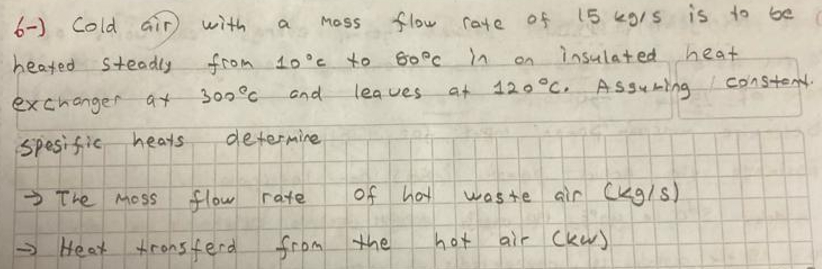 6-) Cold air with a mass flow rate of 15 kg/s is to be
heated steadly from 10°c to 80°c in an insulated heat
exchanger at 300°c and leaves at 120°C. Assuming constant.
spesific heats determine
→ The mass flow rate of hot waste air (kg/s)
→ Heat transferd from the hot air (kw)